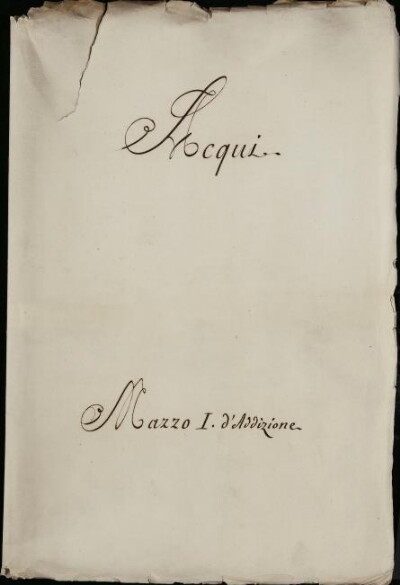 Acqui.
Mazzo I. d'Addizione